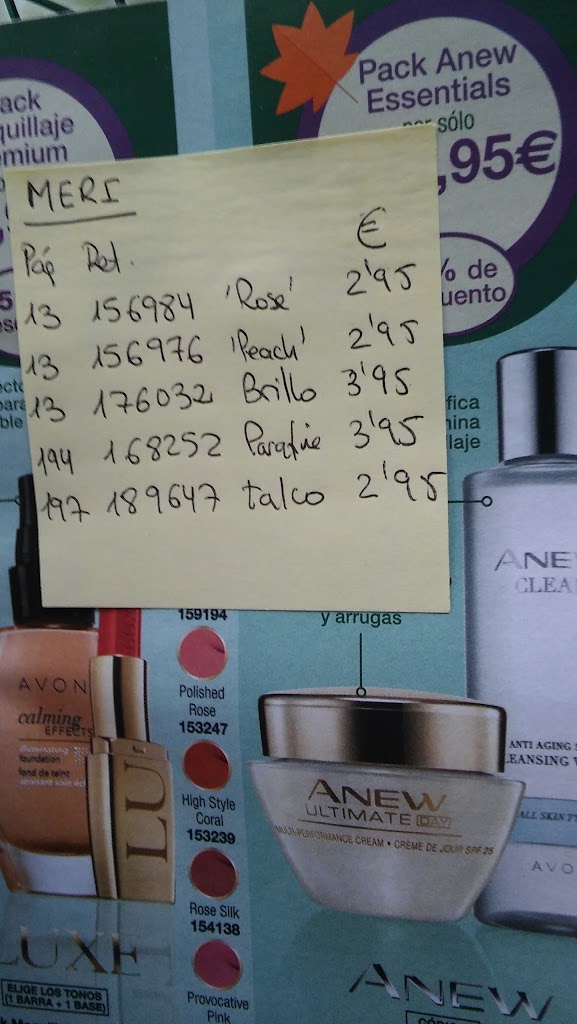 Pack Anew
Essentials
por sólo
,95€
% de
MERI
Pág Ref. €
13 156984 'Rosé' 2'95
13 156976 'Peach' 2'95
13 176032 Brillo 3'95
194 168252 3'95
197 189647 talco 2'95
159194
Polished
Rose
153247
High Style
Coral
153239
Rose Silk
154138
Provocative
Pink
y arrugas
AVON
calming
EFFECTS
illuminating
foundation
fond de teint
LU
LUXE
ELIGE LOS TONOS
(1 BARRA + 1 BASE)
ANEW
ULTIMATE DAY
MULTI-PERFORMANCE CREAM • CRÈME DE JOUR SPF 25
ANEW
CLEA
ANTI AGING
ALL SKIN
AVO
ANEW